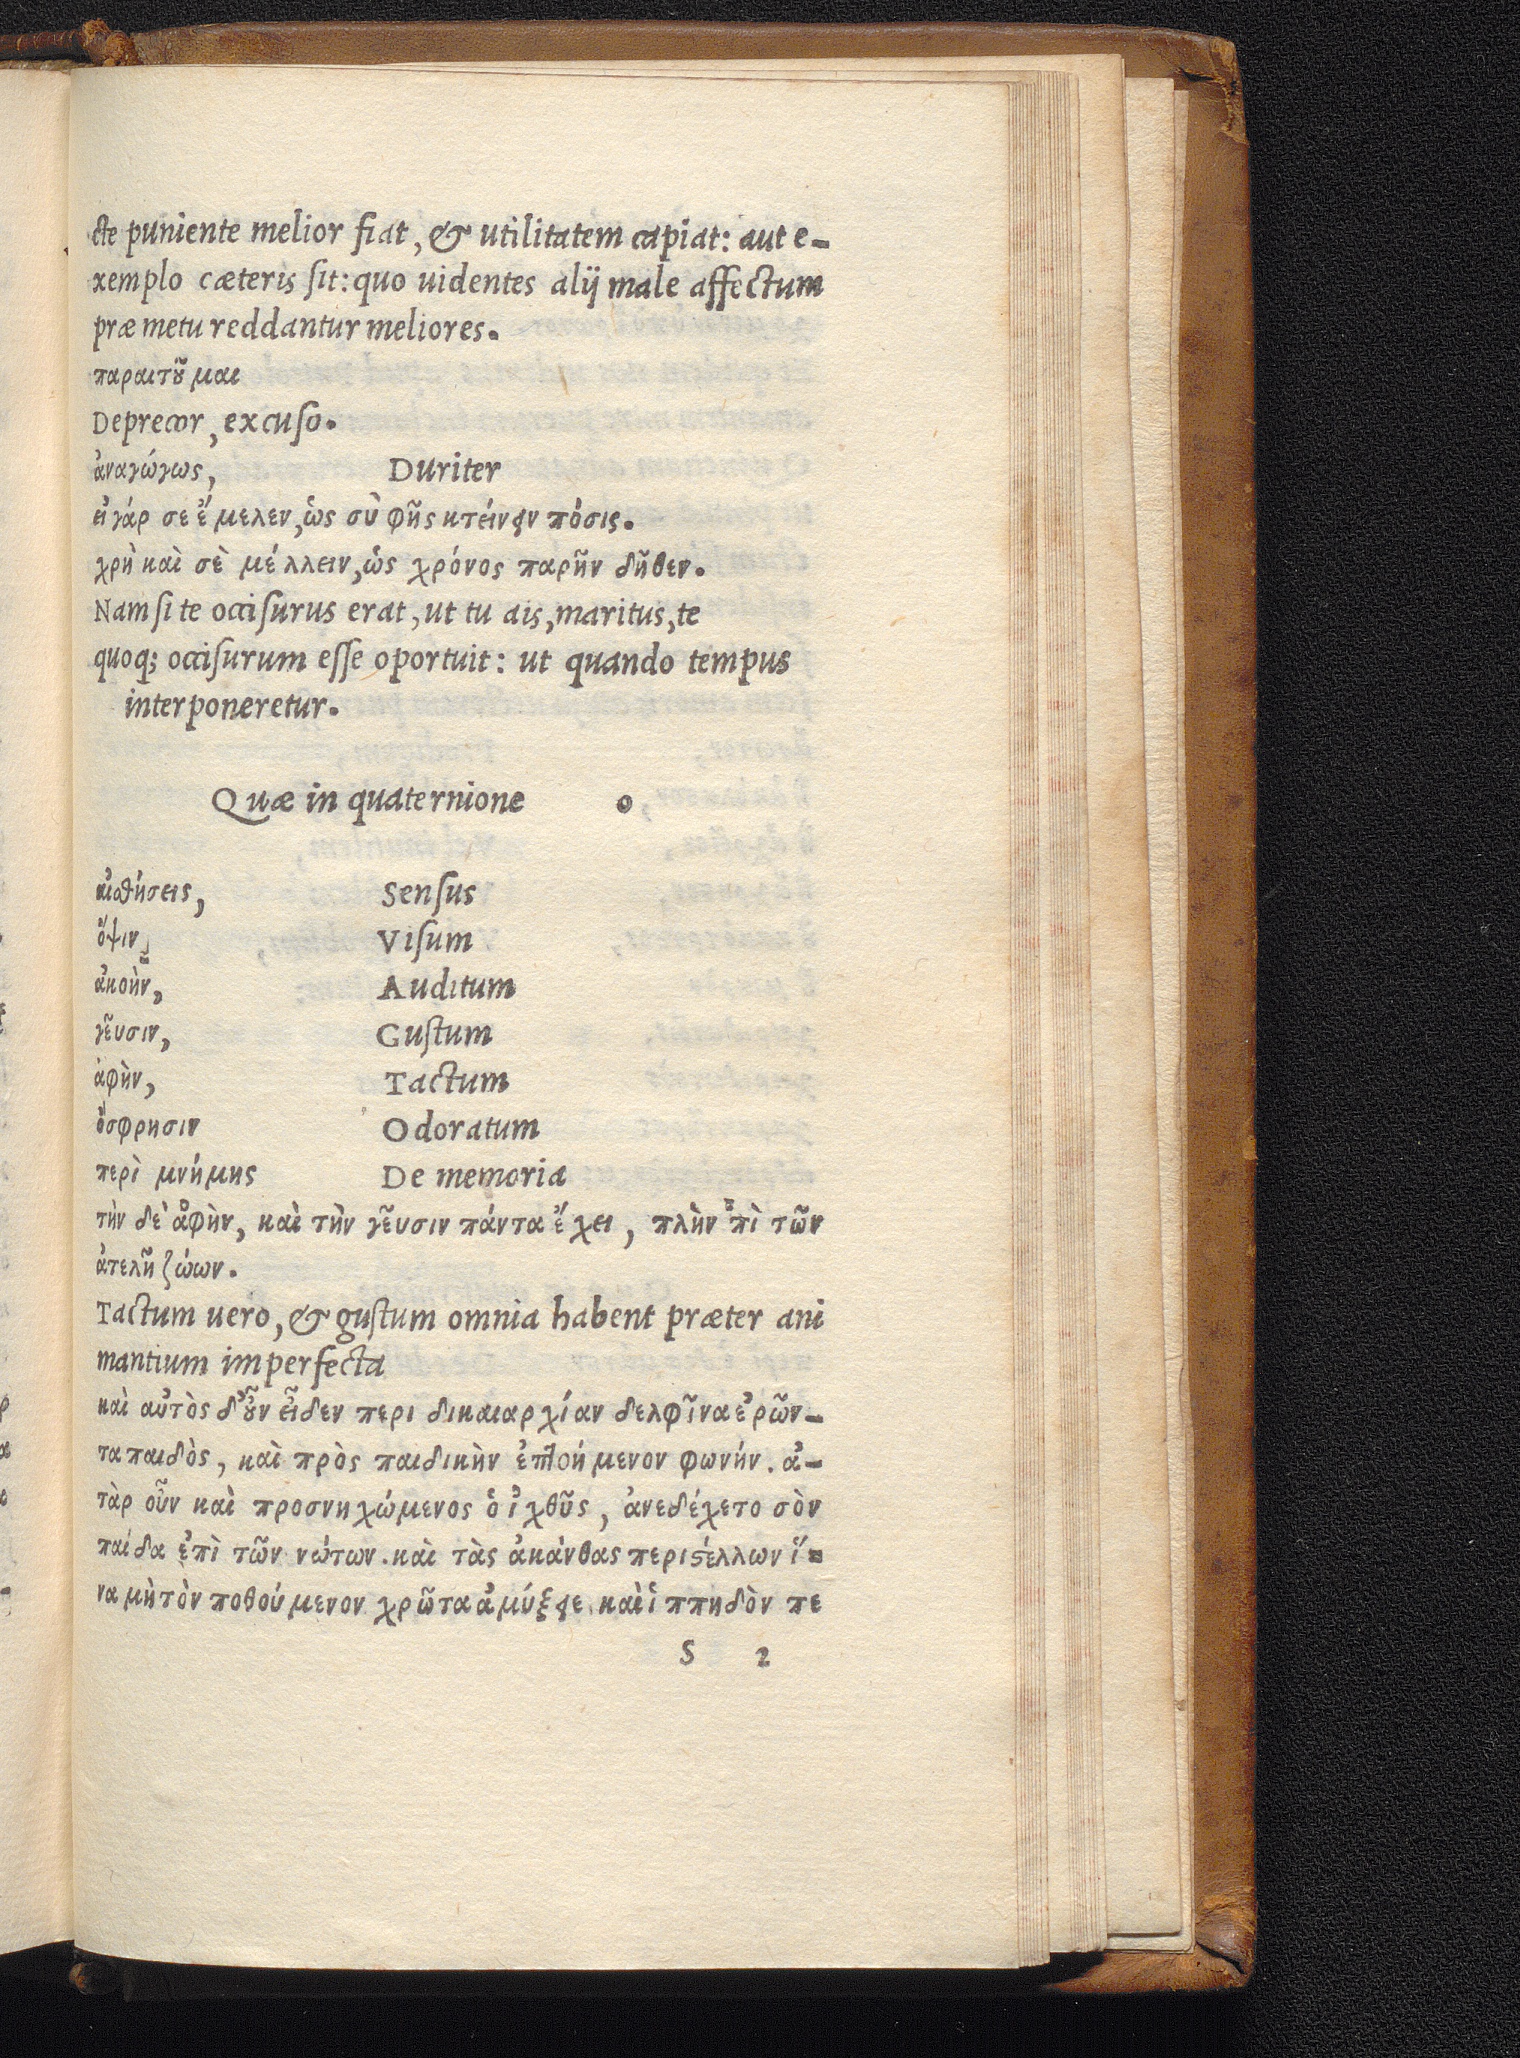 cte puniente melior fiat, & utilitatem capiat: aut e-
xemplo cæteris sit: quo uidentes alij male affectum
præ metu reddantur meliores.
παραιτοῦμαι
Deprecor, excuso.
ἀναγώγως, Duriter
εἰ γάρ σε ἔμελεν, ὡς σὺ φῂς κτείνειν πόσις.
χρὴ καὶ σὲ μέλλειν, ὡς χρόνος παρῆν δῆθεν.
Nam si te occisurus erat, ut tu ais, maritus, te
quoq; occisurum esse oportuit: ut quando tempus
interponeretur.
Quæ in quaternione o
αἰσθήσεις, Sensus
ὄψιν, Visum
ἀκοὴν, Auditum
γεῦσιν, Gustum
ἁφὴν, Tactum
ὄσφρησιν Odoratum
περὶ μνήμης De memoria
τὴν δὲ ἁφὴν, καὶ τὴν γεῦσιν πάντα ἔχει, πλὴν ἐπὶ τῶν
ἀτελῆ ζώων.
Tactum uero, & gustum omnia habent præter ani
mantium imperfecta
καὶ αὐτὸς δ' οὖν εἶδεν περι δικαιαρχίαν δελφῖνα ἐρῶν-
τα παιδὸς, καὶ πρὸς παιδικὴν ἐπτοημένον φωνήν. ἀ-
τὰρ οὖν καὶ προσνηχώμενος ὁ ἰχθῦς, ἀνεδέχετο σὸν
παίδα ἐπὶ τῶν νώτων. καὶ τὰς ἀκάνθας περιστέλλων ἵ-
να μὴ τὸν ποθούμενον χρῶτα ἀμύξειε. καὶ ἱππηδὸν πε
S 2